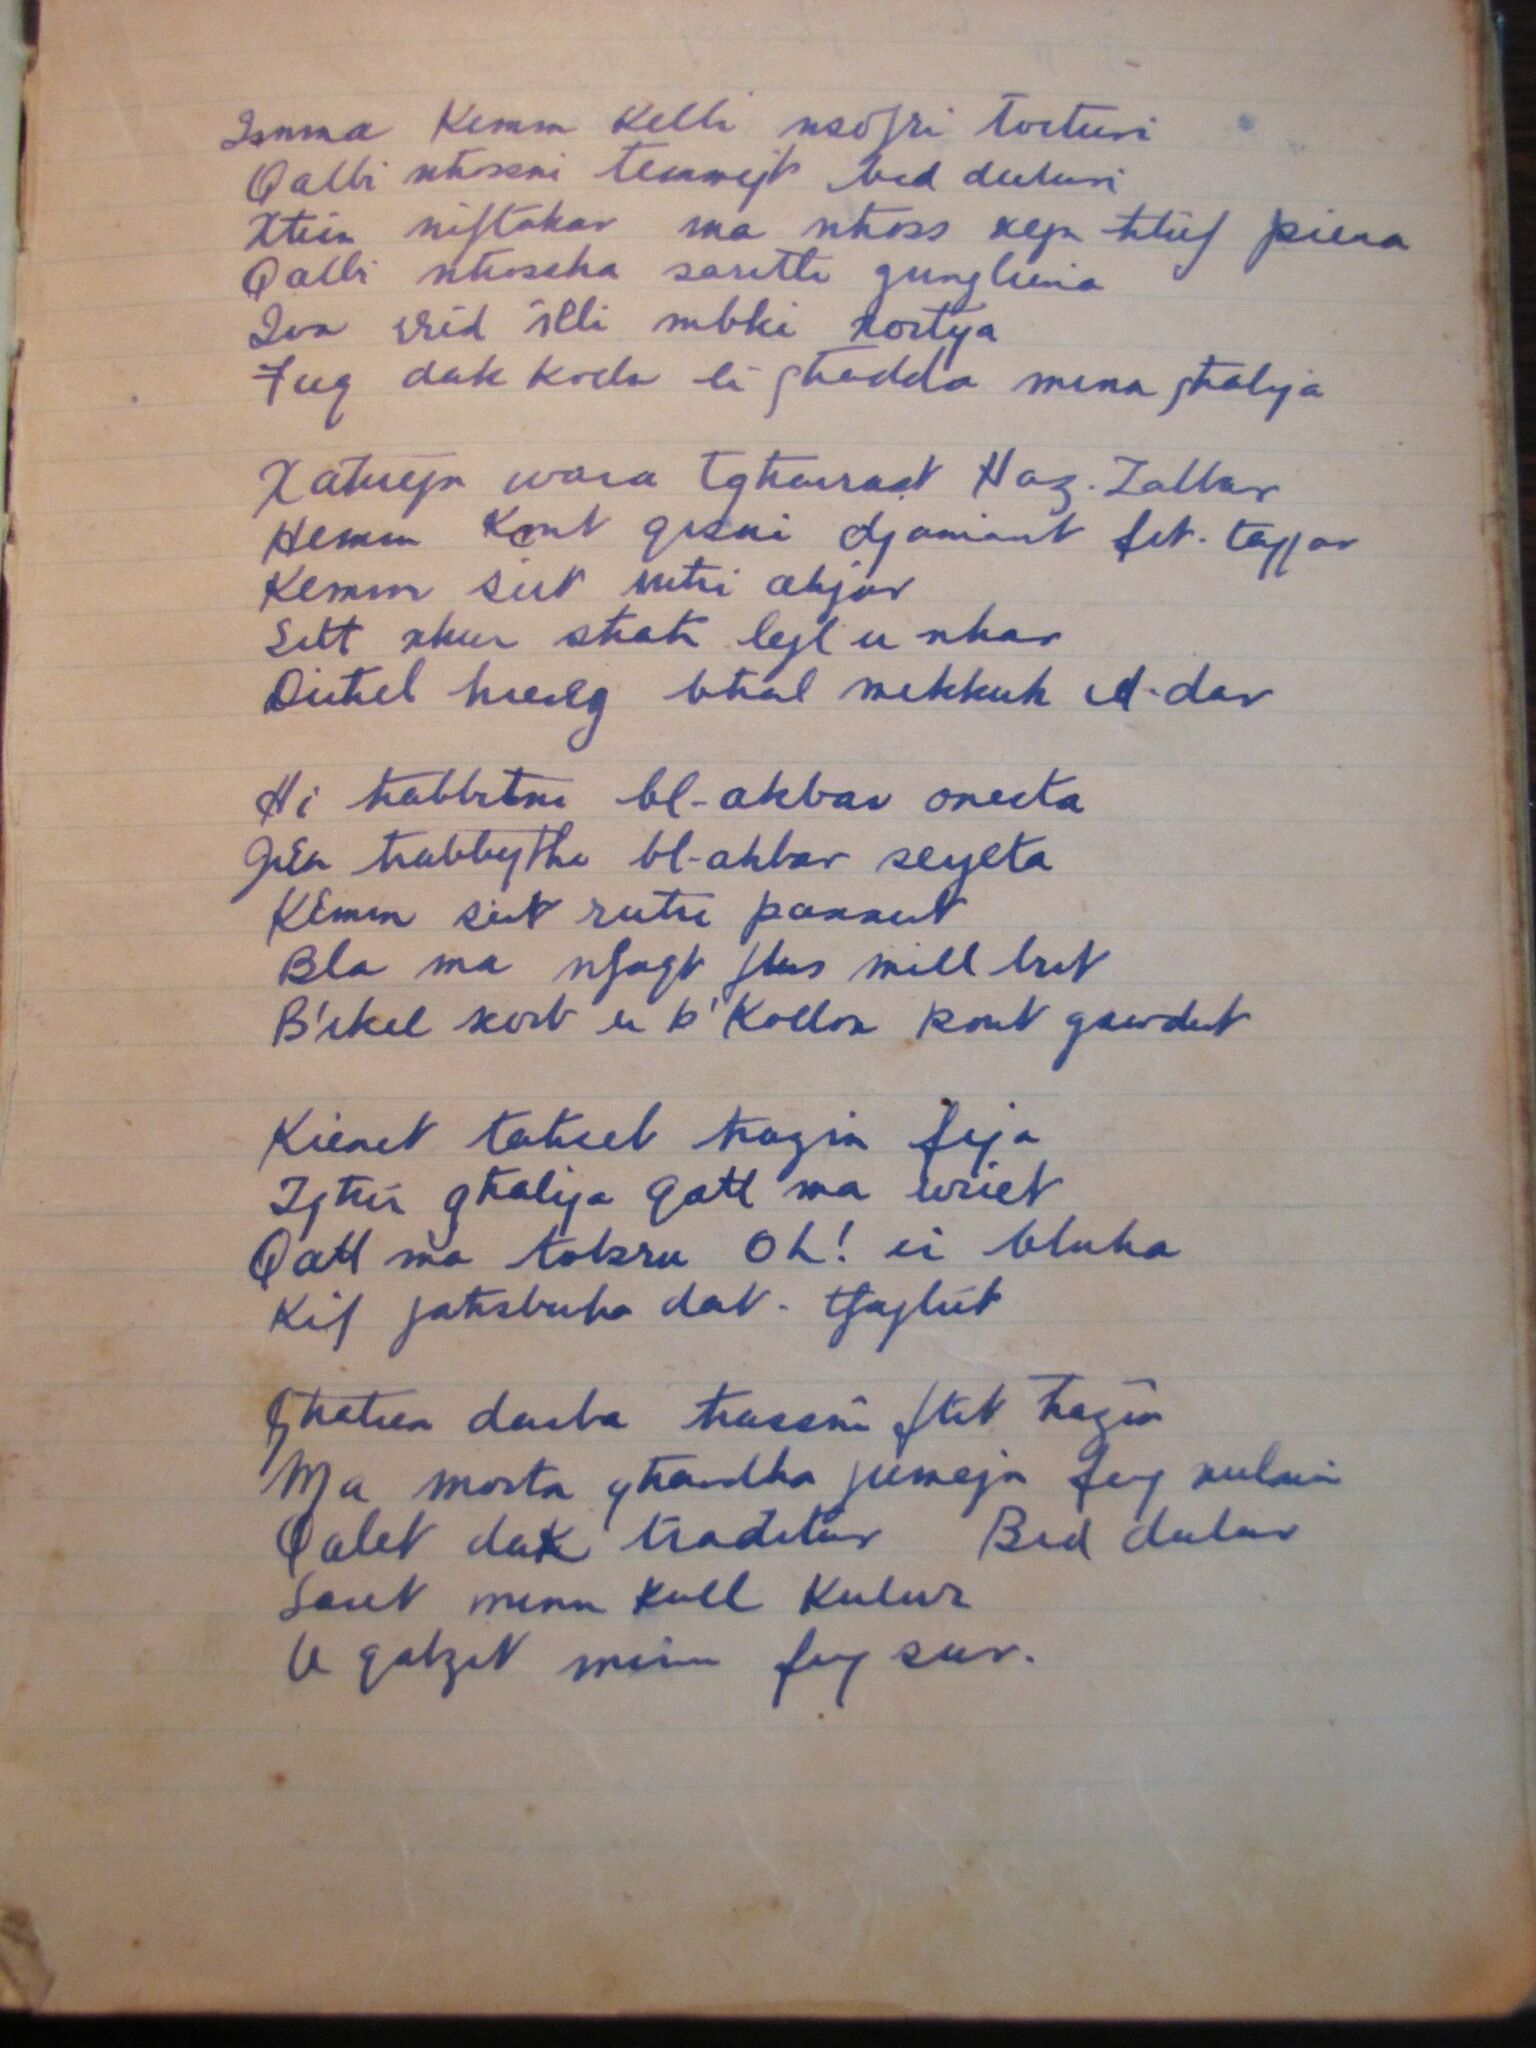 Imma Kemm Kelli nsofri torturi
Qalbi nħossni temmejt bid duluri
Xħin niftakar ma nħoss xejn ħlief piena
Qalbi nħossha saretli
Irid illi nibki
Fuq dak kollu li għadda minn għalija
Xaħrejn wara Haż-Żabbar
Hemm Kont qisni djamant fit-tajjar
Kemm sirt aħjar
Sitt xhur sħaħ lejl u nhar
Dieħel ħiereġ bħal mekkuk id-dar
Hi ħabbitni bl-akbar onesta
Jien ħabbejtha bl-akbar serjeta
Kemm sirt
Bla ma nfaqt flus mill but
B'ikel xorb u b'Kollox kont gawdut
Kienet taħseb ħażin fija
għalija qatt ma wriet
Qatt ma tobsru Oh! li bluha
Kif jaħsbuha dat-tfajliet
Għaħar darba ħassni ftit ħażin
Ma morta għandha jumejn fuq xulxin
Qalet dak traditur Bid dulur
Saret minn kull Kulur
U qabżet minn fuq sur.